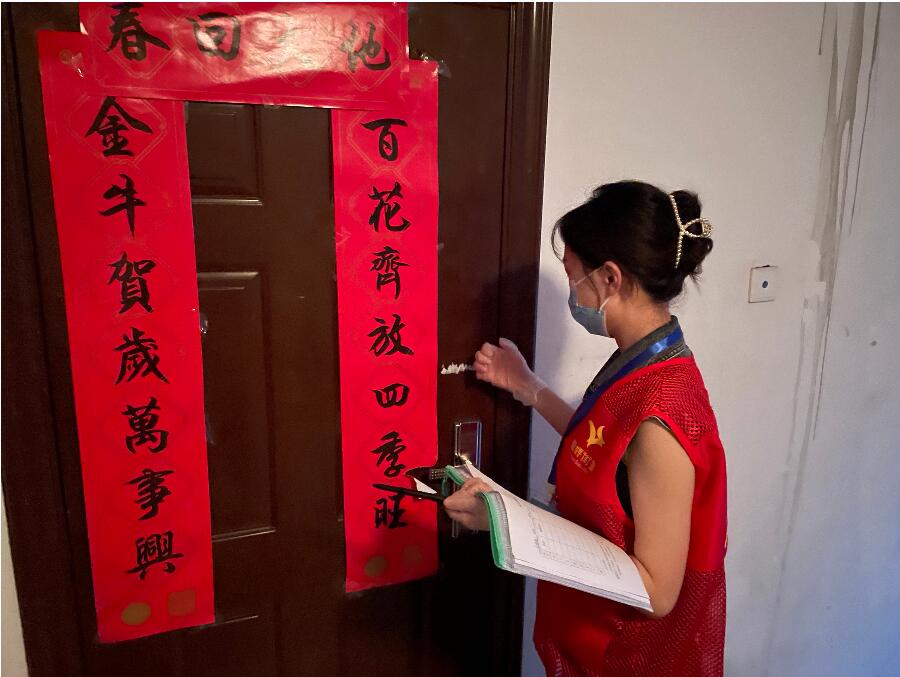 春回地
金牛賀歲萬事興
百花齊放四季旺